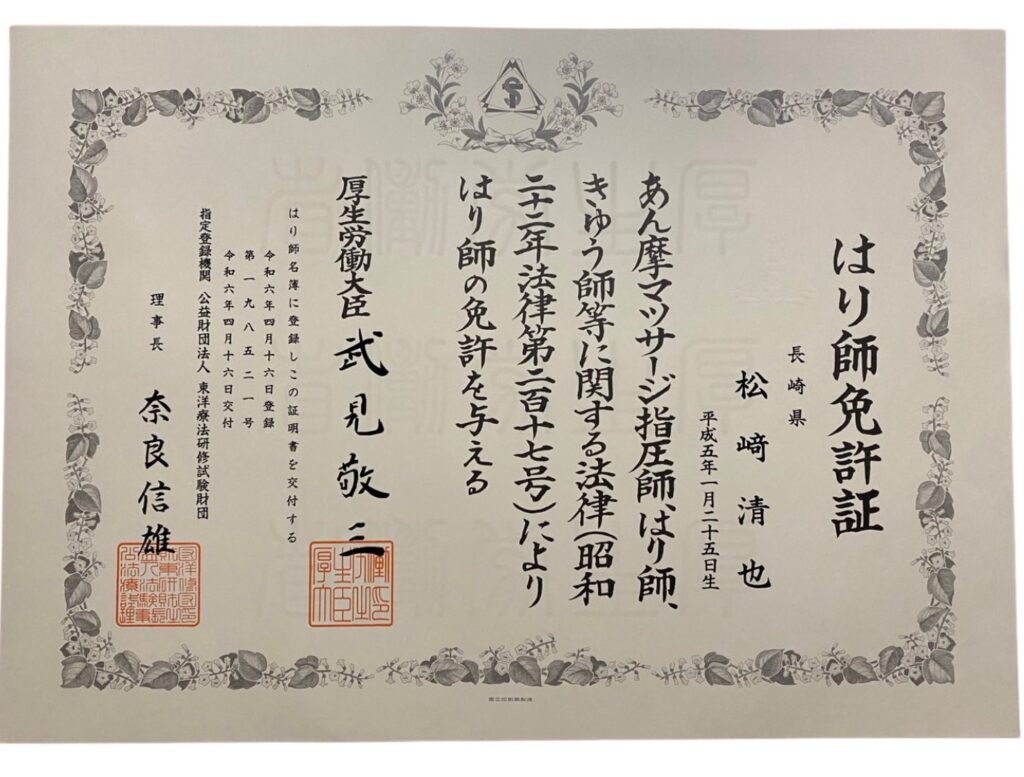 はり師免許証
長崎県
松﨑清也
平成五年一月二十五日生
あん摩マツサージ指圧師、はり師、
きゆう師等に関する法律(昭和
二十二年法律第二百十七号)により
はり師の免許を与える
厚生労働大臣 武見敬三
はり師名簿に登録しこの証明書を交付する
令和六年四月十六日登録
第一九八五二一号
令和六年四月十六日交付
指定登録機関 公益財団法人 東洋療法研修試験財団
理事長 奈良信雄
国立印刷局製造